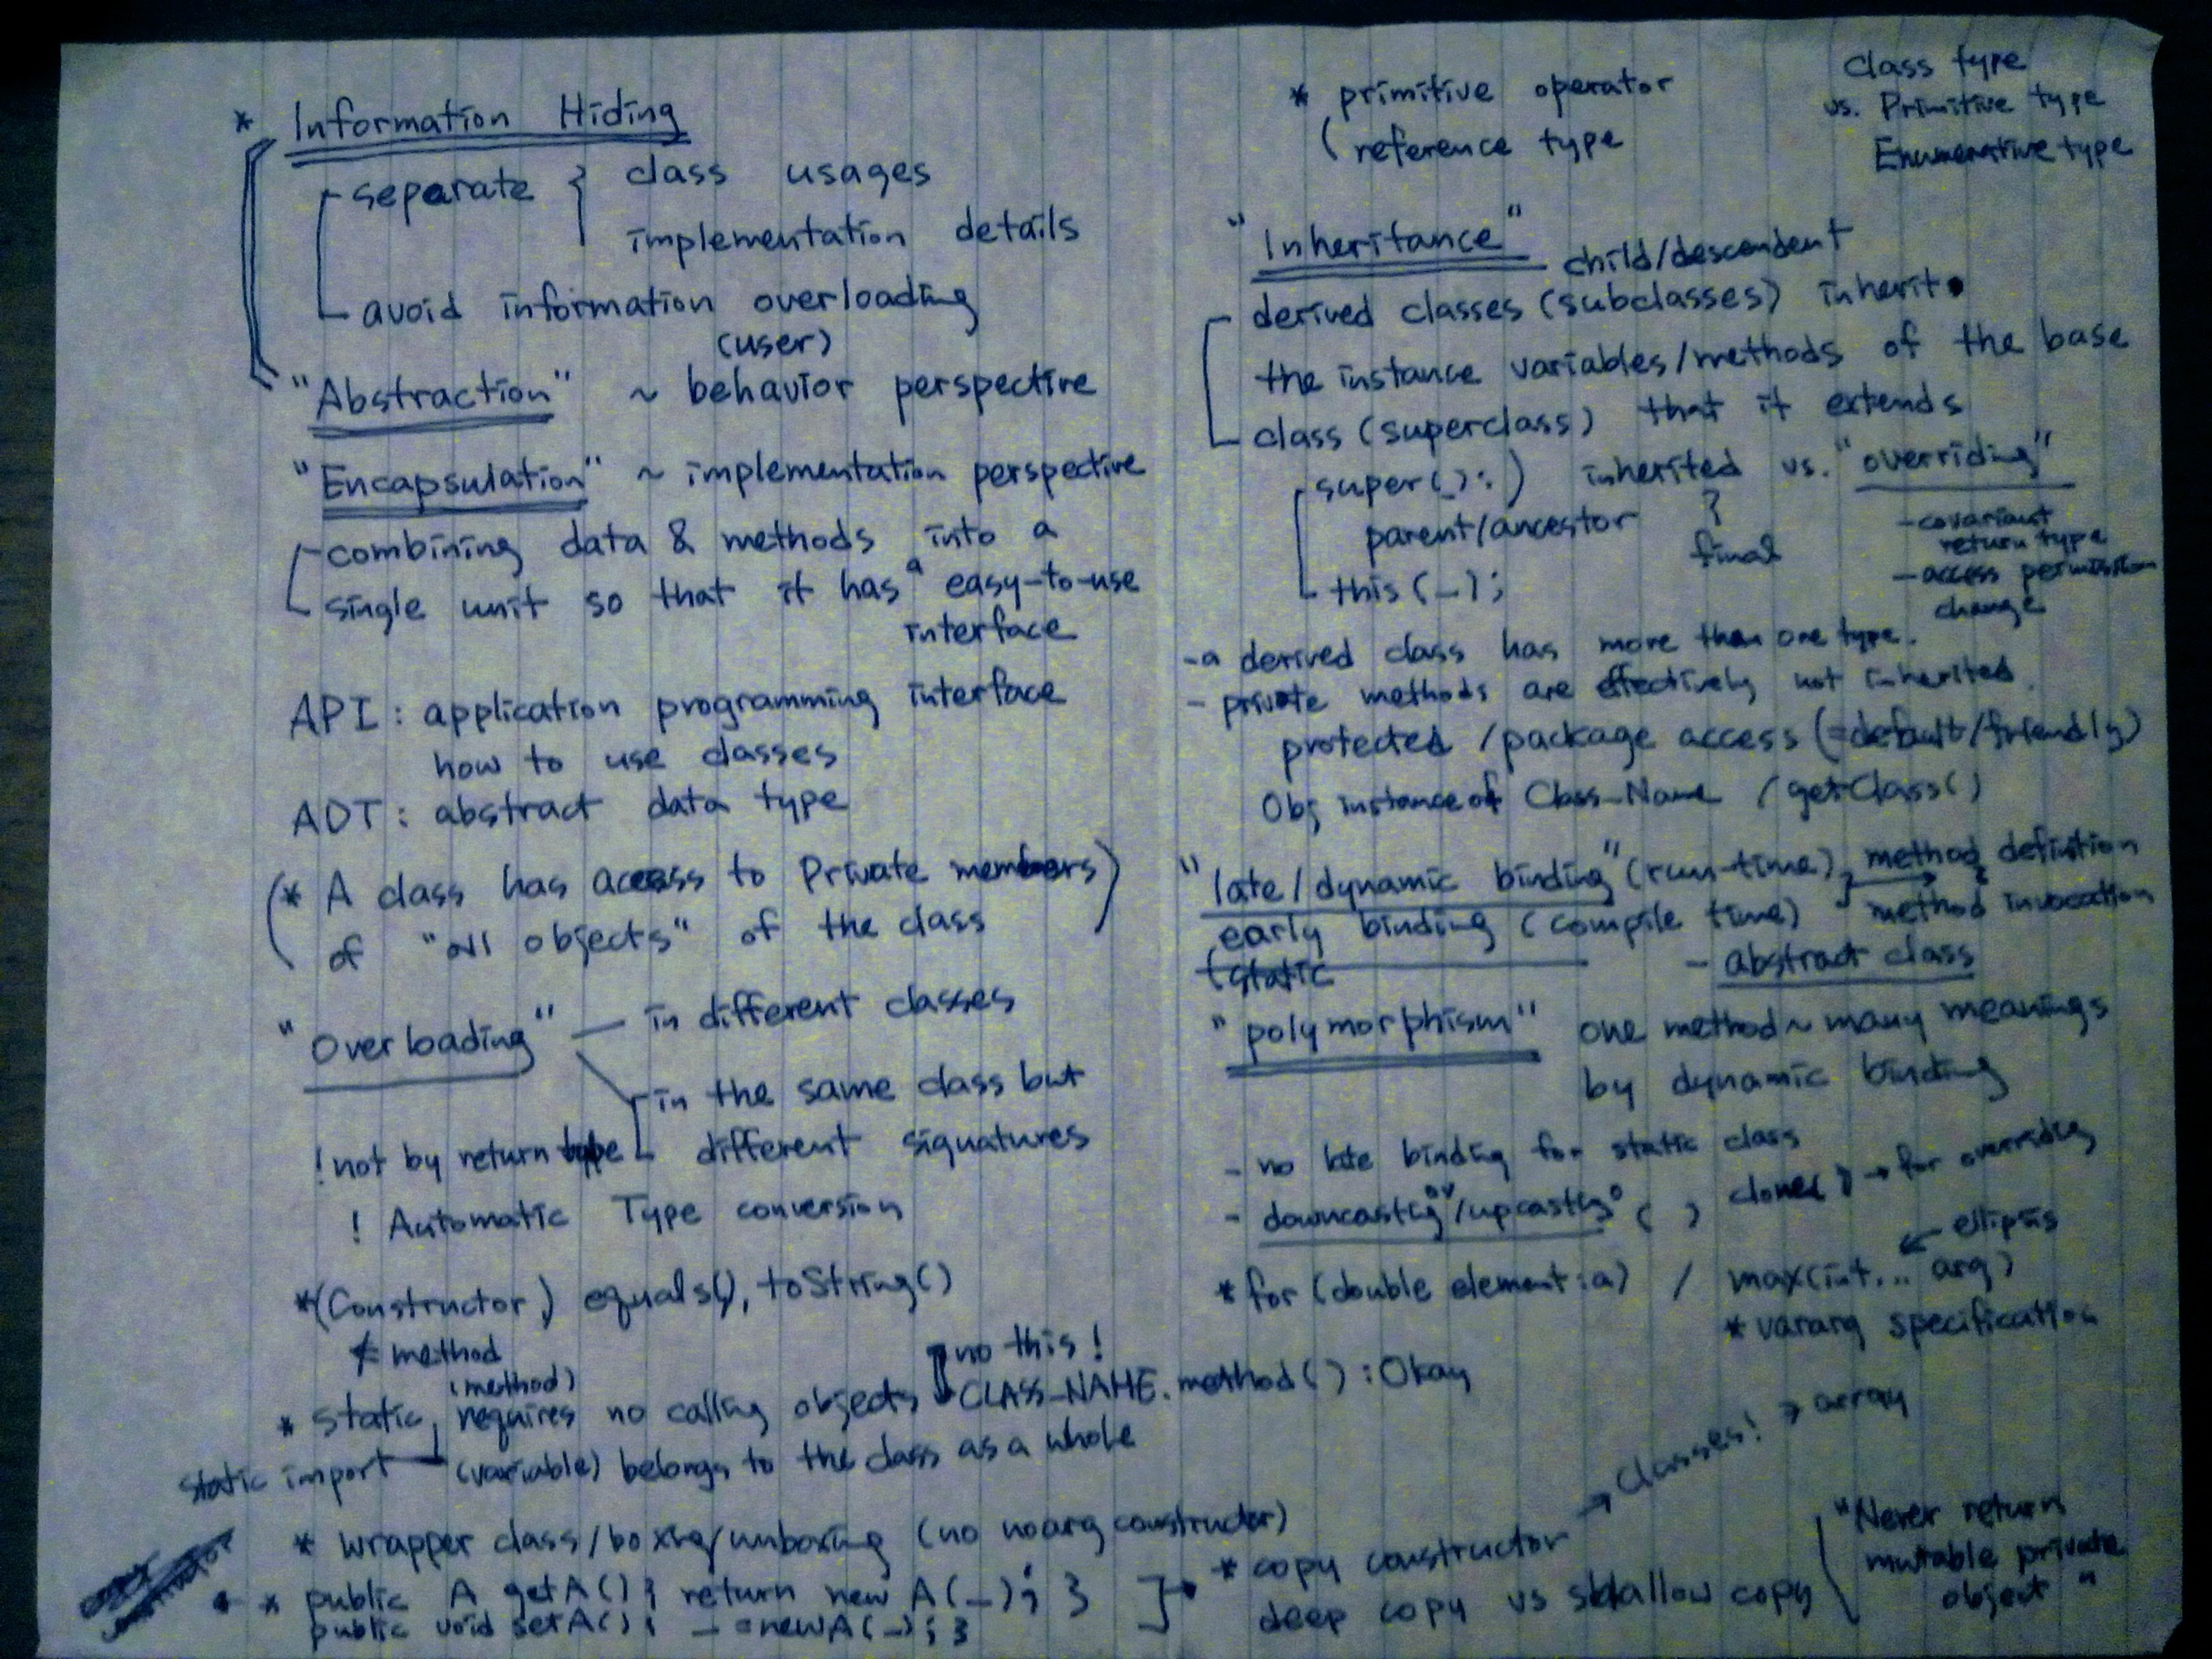 * Information Hiding
separate { class usages
implementation details
avoid information overloading
(user)
"Abstraction" ~ behavior perspective
"Encapsulation" ~ implementation perspective
combining data & methods into a
single unit so that it has a easy-to-use
interface
API : application programming interface
how to use classes
ADT : abstract data type
(* A class has access to Private members)
of "all objects" of the class
"Overloading" — in different classes
in the same class but
! not by return type different signatures
! Automatic Type conversion
*(Constructor) equals(), toString()
≠ method
no this!
(method)
* static requires no calling objects CLASS_NAME.method() : Okay
static import (variable) belongs to the class as a whole
* wrapper class/boxing/unboxing (no noarg constructor)
* * public A getA() { return new A(_); }
public void setA() { _ = new A(_); }
* primitive operator
( reference type
class type
vs. Primitive type
Enumerative type
"Inheritance" child/descendent
derived classes (subclasses) inherit
the instance variables/methods of the base
class (superclass) that it extends
super(_); ) inherited vs. "overriding"
parent/ancestor
final
this(_);
- covariant
return type
- access permission
change
- a derived class has more than one type.
- private methods are effectively not inherited.
protected / package access (=default/friendly)
Obj instance of Class_Name / getClass()
"late/dynamic binding" (run-time) method definition
early binding (compile time) method invocation
(static
- abstract class
"polymorphism" one method ~ many meanings
by dynamic binding
- no late binding for static class
- downcasting/upcasting ( ) clone() → for overriding
← ellipsis
* for (double element : a) / max(int... arg)
* vararg specification
* copy constructor → classes! → array
deep copy vs shallow copy
"Never return
mutable private
object"